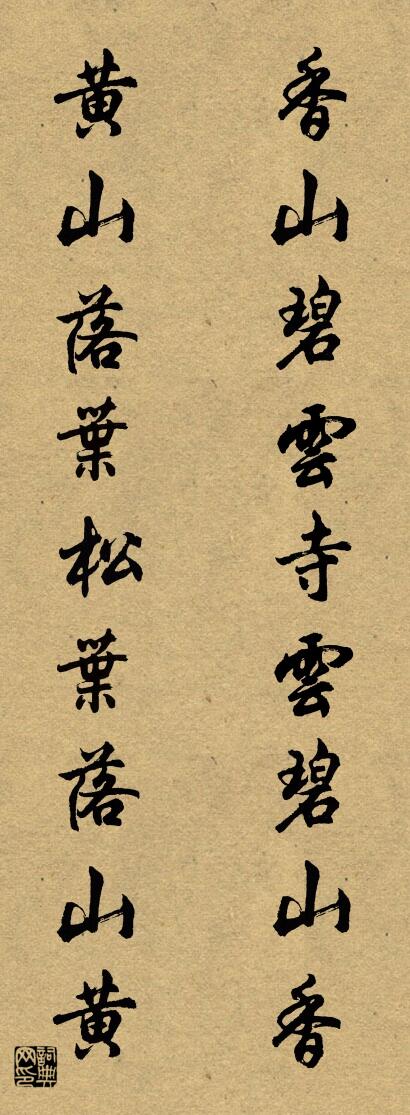 香山碧雲寺雲碧山香
黄山落葉松葉落山黄
詞典網印